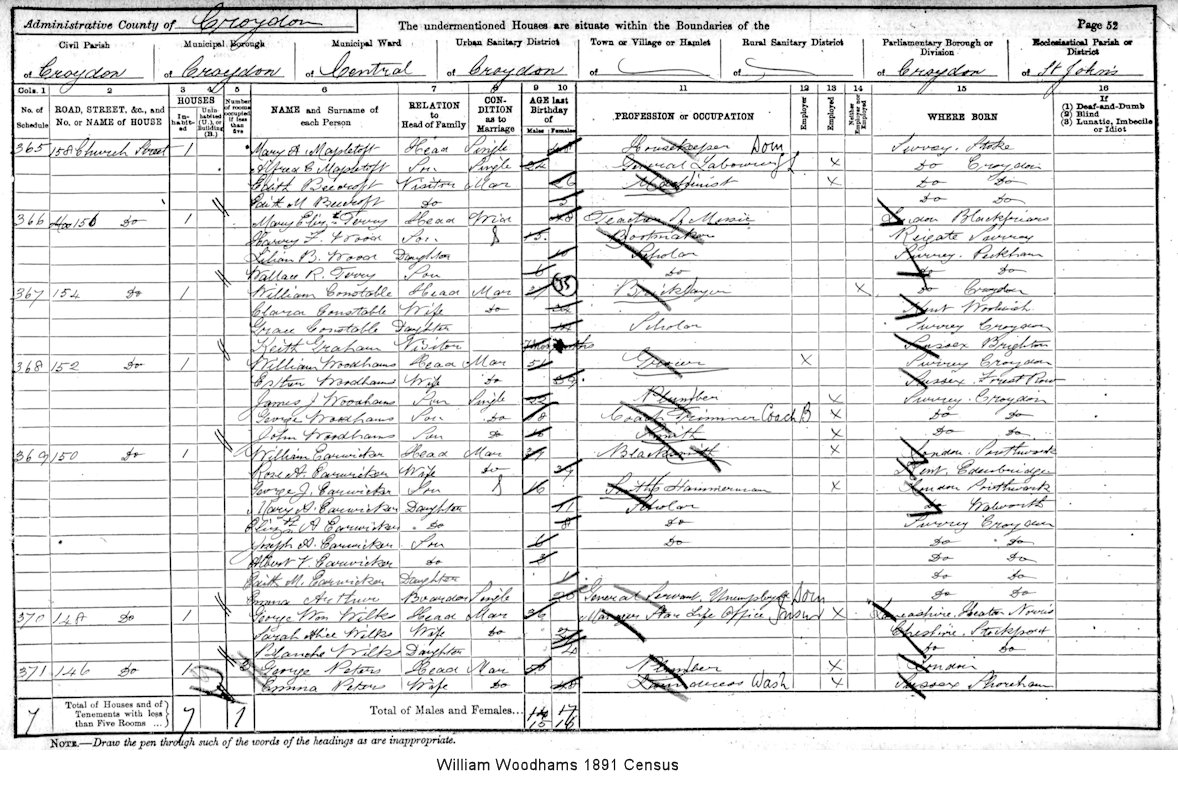 Administrative County of Croydon The undermentioned Houses are situate within the Boundaries of the Page 52
Civil Parish Municipal Borough Municipal Ward Urban Sanitary District Town or Village or Hamlet Rural Sanitary District Parliamentary Borough or Division Ecclesiastical Parish or District
of Croydon of Croydon of Central of Croydon of of of Croydon of St John's
Cols. 1 2 3 4 5 6 7 8 9 10 11 12 13 14 15 16
No. of Schedule ROAD, STREET, &c., and No. or NAME of HOUSE HOUSES Inhabited Uninhabited (U.), or Building (B.) Number of rooms occupied if less than five NAME and Surname of each Person RELATION to Head of Family CONDITION as to Marriage AGE last Birthday of Males Females PROFESSION or OCCUPATION Employer Employed Neither Employer nor Employed WHERE BORN If (1) Deaf-and-Dumb (2) Blind (3) Lunatic, Imbecile or Idiot
365 158 Church Street 1 Mary A. Mapletoft Head Single Housekeeper Dom Surrey Stoke
Alfred C. Mapletoft Son Single General Labourer X Do Croydon
Edith Beecroft Visitor Mar 26 Machinist X Do Do
Edith M. Beecroft Do Do Do
366 156 Do 1 Mary Eliz.th Terry Head Wid 48 Teacher of Music London Blackfriars
Harry F. Wood Son S 15 Bootmaker Reigate Surrey
Lilian B. Wood Daughter 10 Scholar Surrey. Peckham
Wallace R. Terry Son 6 Do Do Do
367 154 Do 1 William Constable Head Mar 35 Bricklayer X Do Croydon
Clara Constable Wife Do Kent Woolwich
Grace Constable Daughter Scholar Surrey Croydon
Keith Graham Visitor Sussex Brighton
368 152 Do 1 William Woodhams Head Mar 51 Grocer X Surrey Croydon
Esther Woodhams Wife Do Sussex Forest Row
James J Woodhams Son Single Plumber X Surrey. Croydon
George Woodhams Son Do 18 Coach Trimmer Coach B X Do Do
John Woodhams Son Do 16 Smith X Do Do
369 150 Do 1 William Earwicker Head Mar Blacksmith X London Southwark
Rose A. Earwicker Wife Do 37 Kent. Edenbridge
George J. Earwicker Son S 16 Smiths Hammerman X London Southwark
Mary A. Earwicker Daughter 11 Scholar Do Walworth
Eliz.th A Earwicker Do 8 Do Surrey Croydon
Joseph A. Earwicker Son 6 Do Do Do
Albert V. Earwicker Do 3 Do Do
Edith M. Earwicker Daughter 1 Do Do
Emma Arthur Boarder Single 20 General Servant, Unemployed Dom Do Do
370 148 Do 1 George Wm Wilks Head Mar 26 Manager Star Life Office Insur X Lancashire. Heaton Norris
Sarah Alice Wilks Wife Do Cheshire. Stockport
Blanche Wilks Daughter Do Do
371 146 Do 1 2 George Peters Head Mar 50 Plumber X London
Emma Peters Wife Do 48 Laundress Wash X Sussex Shoreham
7 Total of Houses and of Tenements with less than Five Rooms ... 7 1 Total of Males and Females... 14 17
15 16
NOTE.—Draw the pen through such of the words of the headings as are inappropriate.
William Woodhams 1891 Census